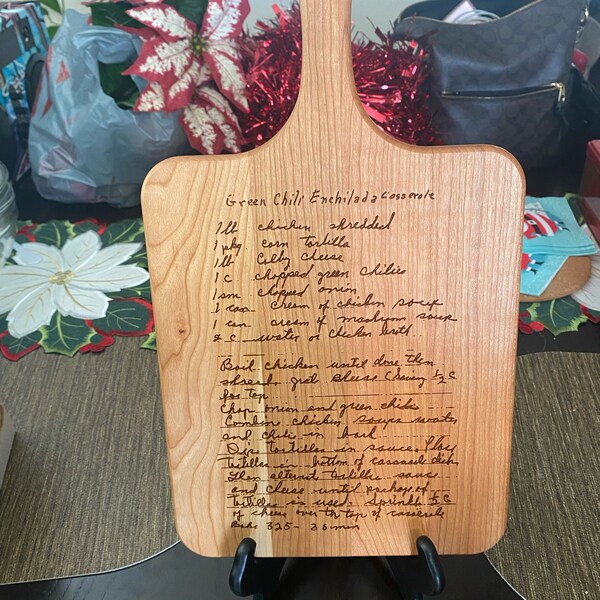 Green Chili Enchilada Casserole
1 lb chicken shredded
1 pkg corn tortilla
1 lb Colby Cheese
1 c chopped green Chilies
1 sm chopped onion
1 can cream of chicken soup
1 can cream of mushroom soup
2 c water or chicken broth
Boil chicken until done then
shread, grat cheese (Saving 1/2 C
for top
Chop onion and green chili
Combin chicken soups water
and chili in
Dip tortillas in sauce. Place
tortillas in bottom of casserole dish
Then alternat tortillas sauce
and cheese until
tortillas is used. Sprinkle 1/2 C
of cheese over the top of casserole
Bake 325 - 30 min